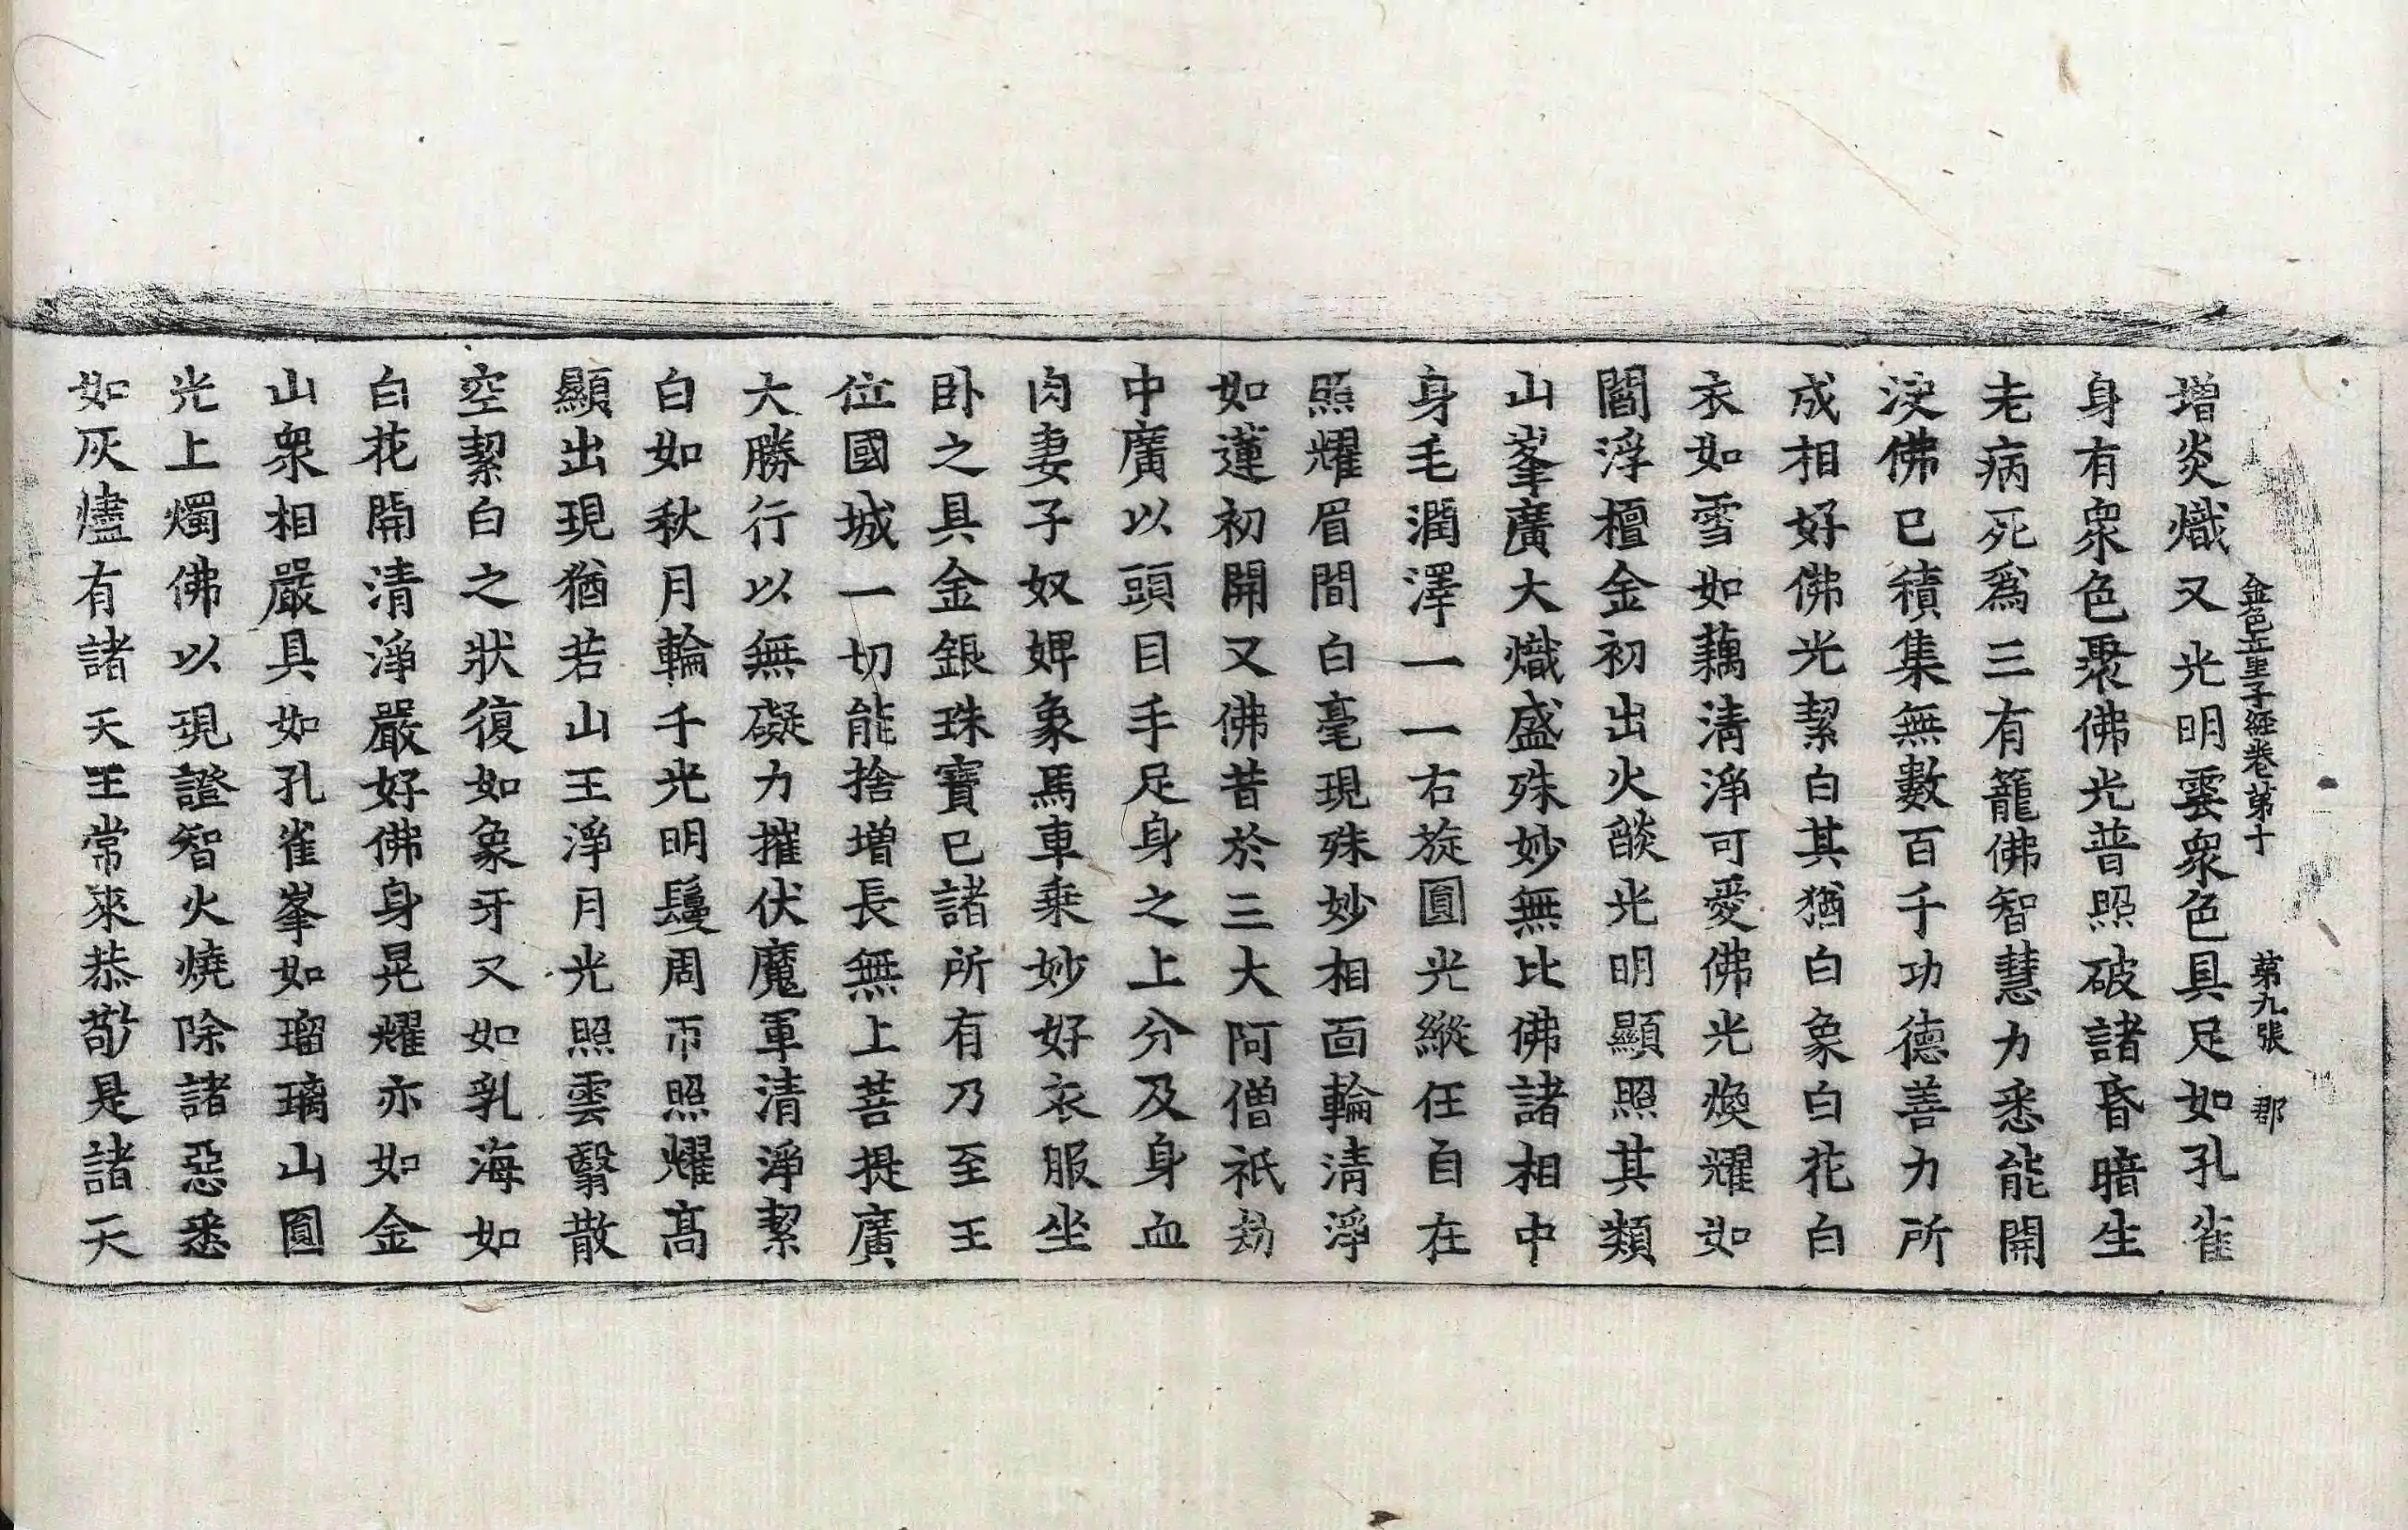 金色童子經卷第十 第九張 郡
增炎熾又光明雲衆色具足如孔雀
身有衆色聚佛光普照破諸昏暗生
老病死爲三有籠佛智慧力悉能開
決佛已積集無數百千功德善力所
成相好佛光絜白其猶白象白花白
衣如雪如藕清淨可愛佛光煥耀如
閻浮檀金初出火燄光明顯照其類
山峯廣大熾盛殊妙無比佛諸相中
身毛潤澤一一右旋圓光縱任自在
照耀眉間白毫現殊妙相面輪清淨
如蓮初開又佛昔於三大阿僧祇劫
中廣以頭目手足身之上分及身血
肉妻子奴婢象馬車乗妙好衣服坐
卧之具金銀珠寶已諸所有乃至王
位國城一切能捨增長無上菩提廣
大勝行以無礙力摧伏魔軍清淨絜
白如秋月輪千光明鬘周帀照耀髙
顯出現猶若山王淨月光照雲翳散
空絜白之狀復如象牙又如乳海如
白花開清淨嚴好佛身晃耀亦如金
山衆相嚴具如孔雀峯如瑠璃山圓
光上燭佛以現證智火燒除諸惡悉
如灰燼有諸天王常來恭敬是諸天